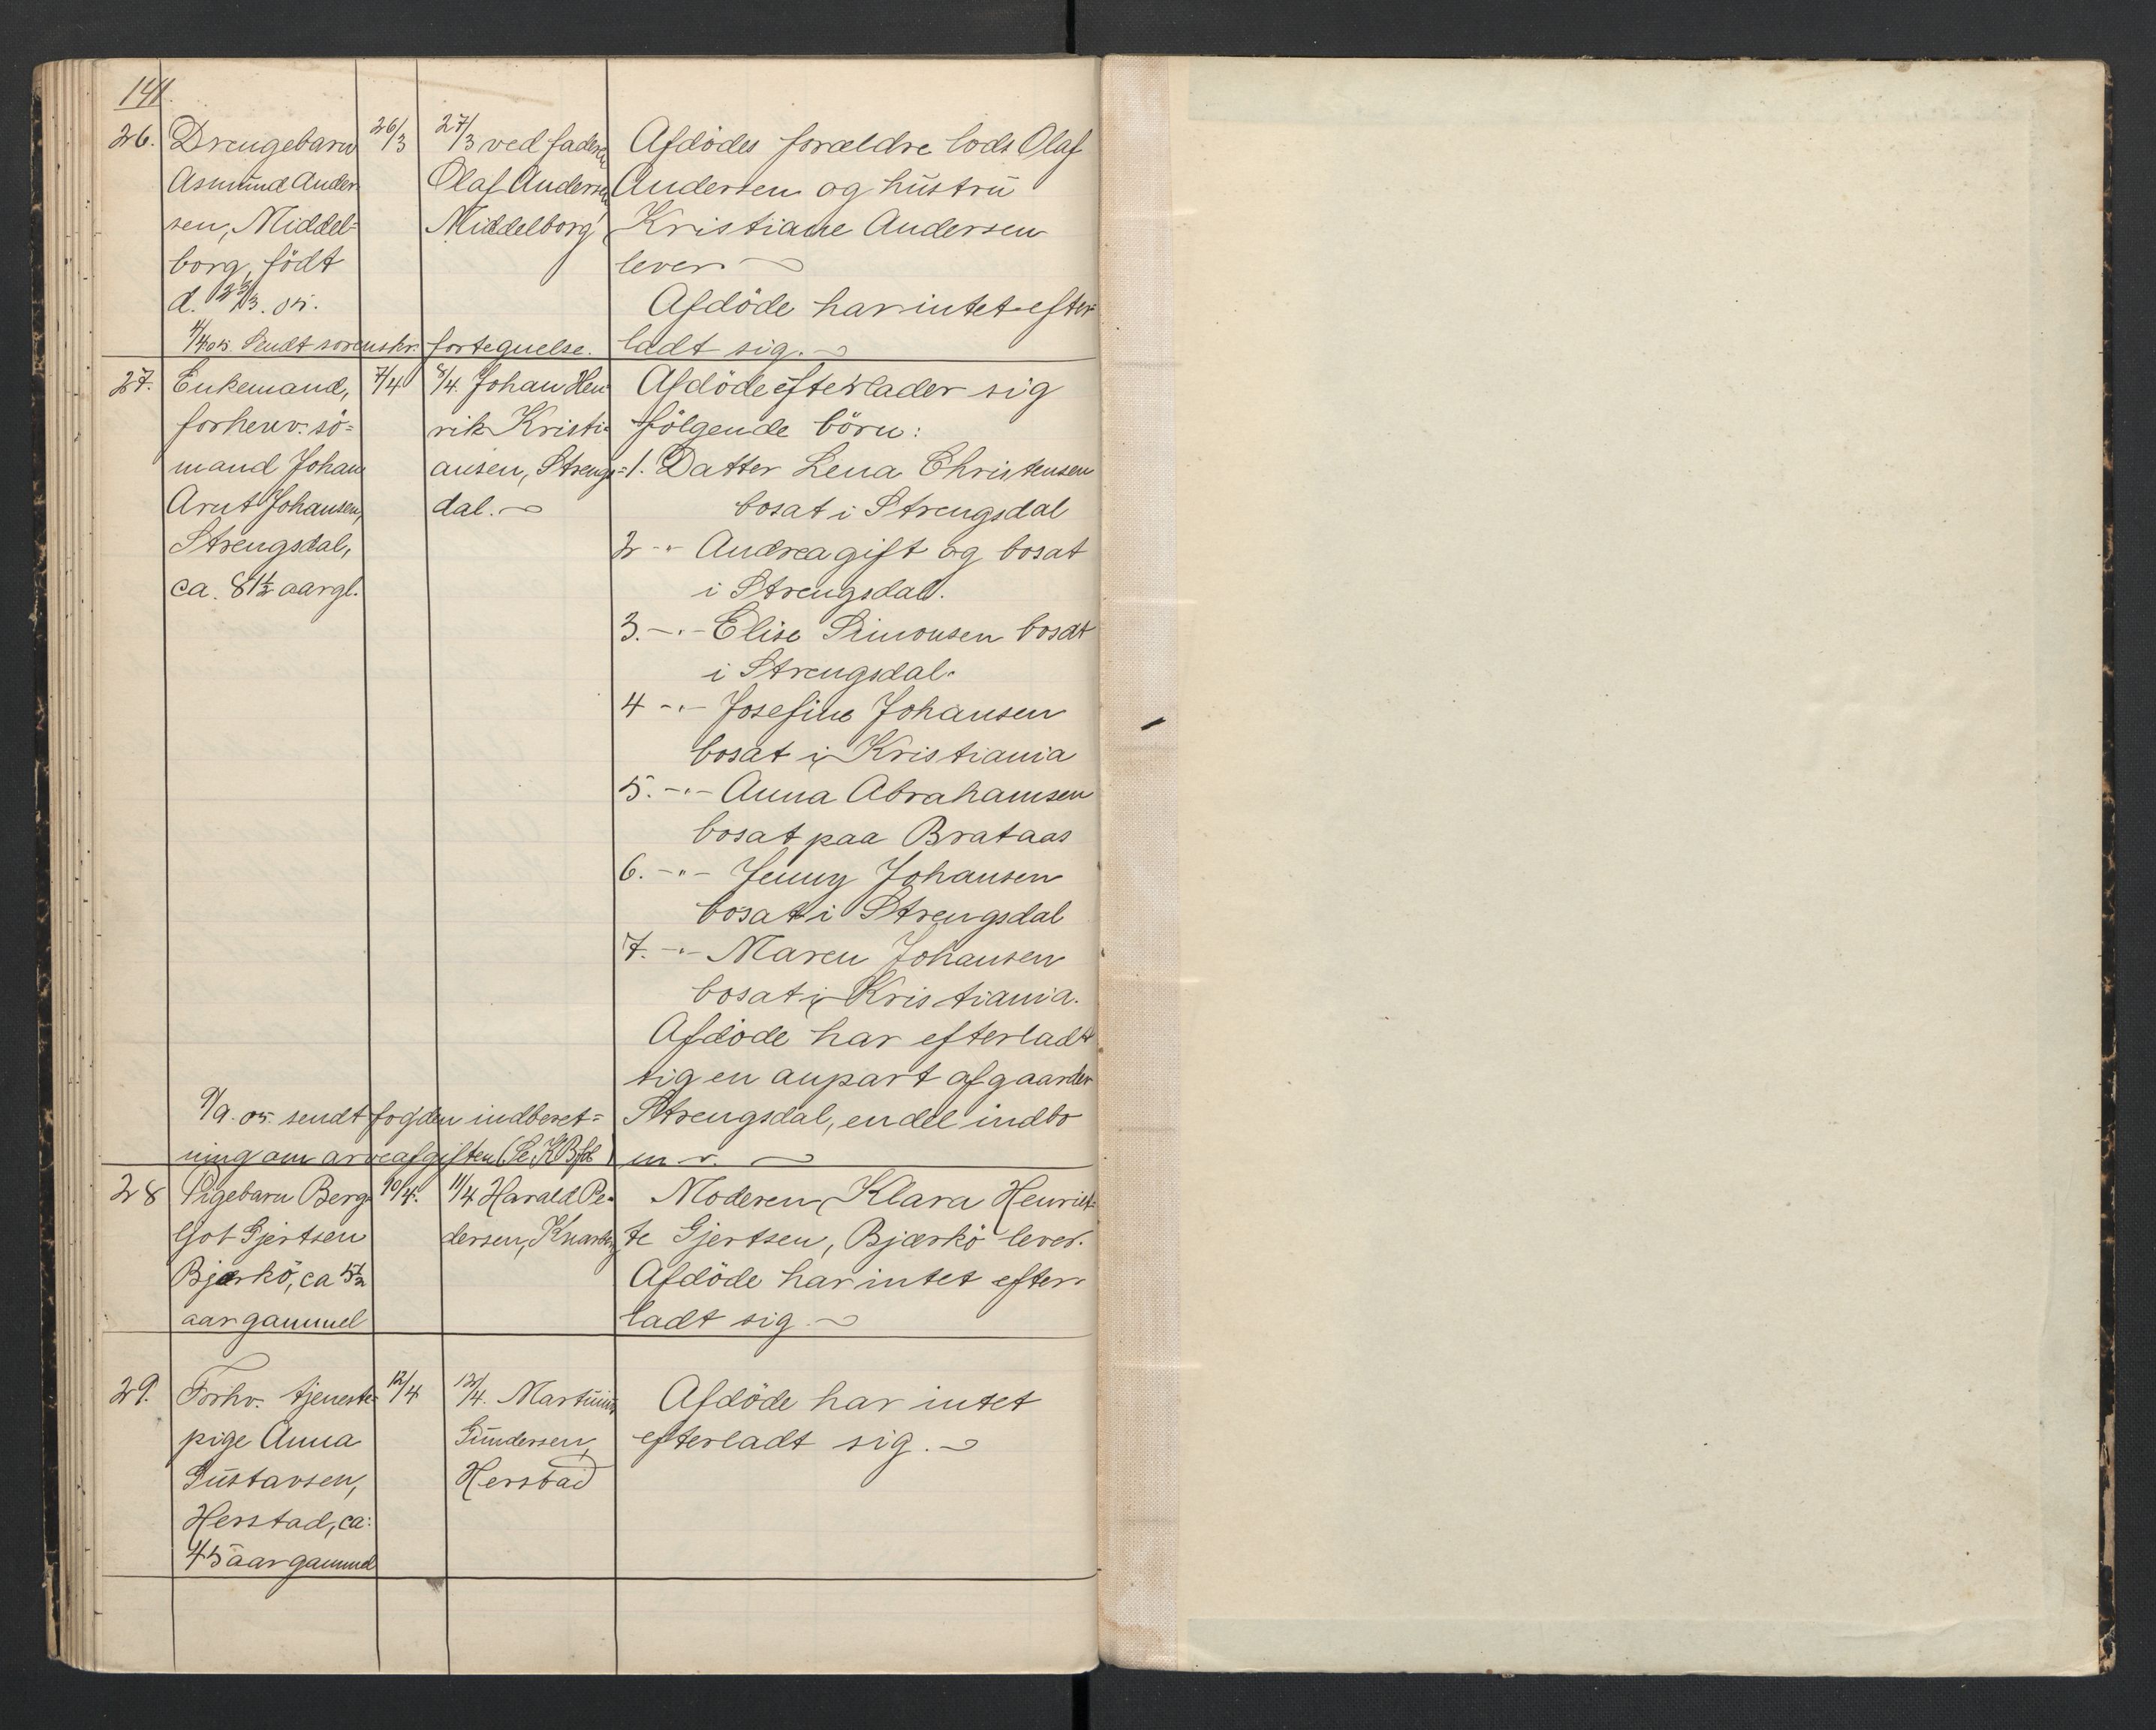 141.
26. Drengebarn
Asmund Ander
sen, Middel=
borg, födt
d. 23/3. 05.
4/4 05. Sendt sorenskr. fortegnelse.
26/3
27/3 ved faderen
Olaf Andersen
Middelborg
Afdödes forældre lods Olaf
Andersen og hustru
Kristiane Andersen
lever.
Afdöde har intet efter=
ladt sig.
27. Enkemand,
forhenv. sö=
mand Johan
Arnt Johansen,
Strengsdal,
ca. 81½ aar gl.
7/4
8/4. Johan Hen
rik Kristi=
ansen, Strengs=
dal.
Afdöde efterlader sig
fölgende börn:
1. Datter Lena Christensen
bosat i Strengsdal
2 -"- Andrea gift og bosat
i Strengsdal.
3. -"- Elise Simonsen bosat
i Strengsdal.
4 -"- Josefine Johansen
bosat i Kristiania
5. -"- Anna Abrahamsen
bosat paa Brataas
6. -"- Jenny Johansen
bosat i Strengsdal
7. -"- Maren Johansen
bosat i Kristiania.
Afdöde har efterladt
sig en anpart af gaarden
Strengsdal, en del indbo
m. v.
9/9. 05. sendt fogden indberet=
ning om arveafgiften (Se K B fol )
28 Pigebarn Berg
ljot Gjertsen
Bjærkö, ca 5½
aar gammel
10/4.
11/4 Harald Pe=
dersen, Knarberg
Moderen, Klara Henriet=
te Gjertsen, Bjærkö lever.
Afdöde har intet efter
ladt sig.
29. Forhv. tjeneste=
pige Anna
Gustavsen,
Herstad, ca:
45 aar gammel
12/4
13/4. Martinius
Gundersen,
Herstad
Afdöde har intet
efterladt sig.